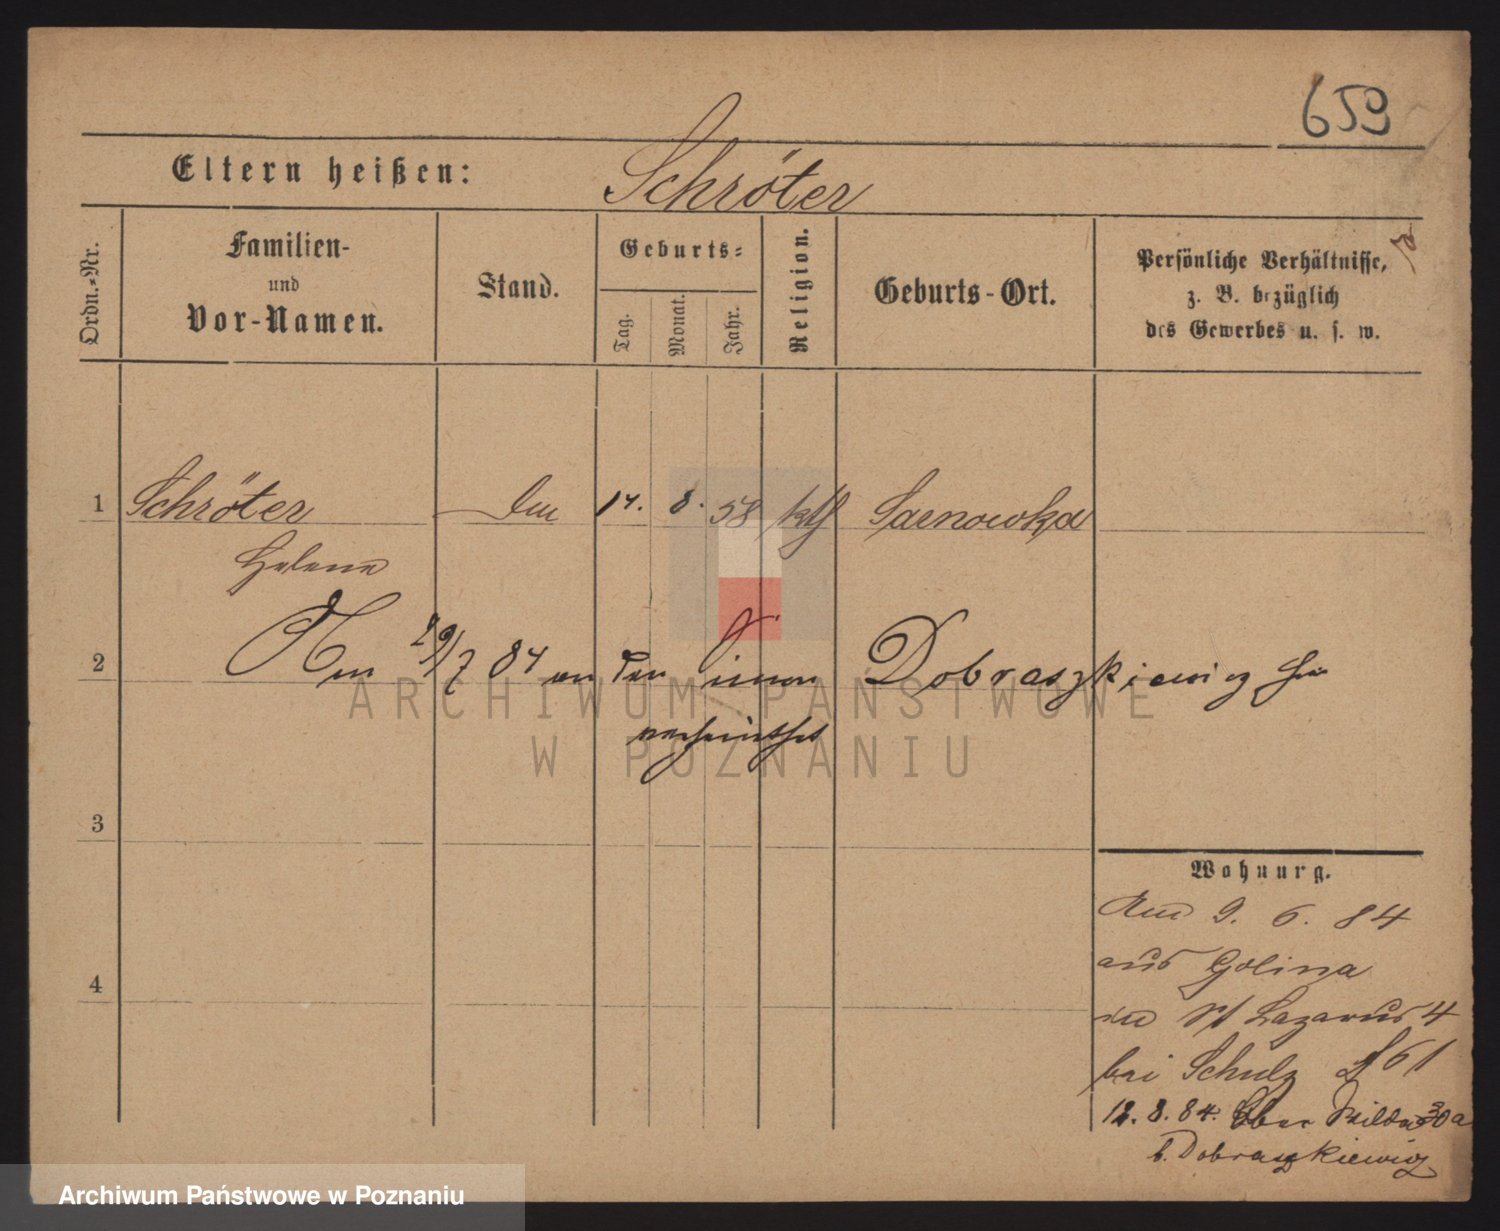 659
Eltern heißen: Schröter
Ordn.-Nr.
Familien-
und
Vor-Namen.
Stand.
Geburts-
Tag.
Monat.
Jahr.
Religion.
Geburts-Ort.
Persönliche Verhältnisse,
z. B. bezüglich
des Gewerbes u. s. w.
1 Schröter 14. 8. 58 kth Sarnowka
Helene
2 29/7 84 an den Dobraszkiewicz
verheirathet
ARCHIWUM PAŃSTWOWE
W POZNANIU
3
Wohnung.
9. 6. 84
aus Golina
4
St Lazarus 4
bei Schulz 61
12. 8. 84. Ober Wilda 30a
b. Dobraszkiewicz
Archiwum Państwowe w Poznaniu